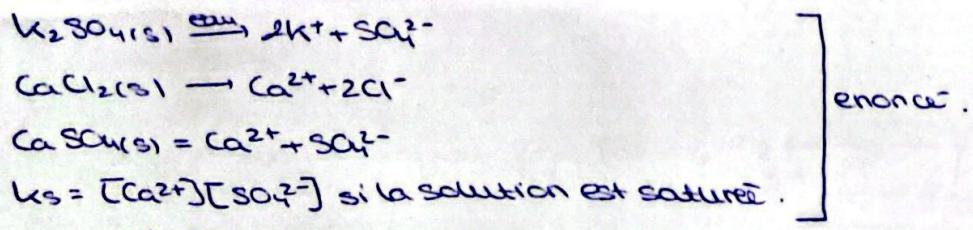 K₂SO₄(s) eau⟶ 2K⁺ + SO₄²⁻
CaCl₂(s) ⟶ Ca²⁺ + 2Cl⁻
CaSO₄(s) = Ca²⁺ + SO₄²⁻
enoncé.
Ks = [Ca²⁺][SO₄²⁻] si la solution est saturée.